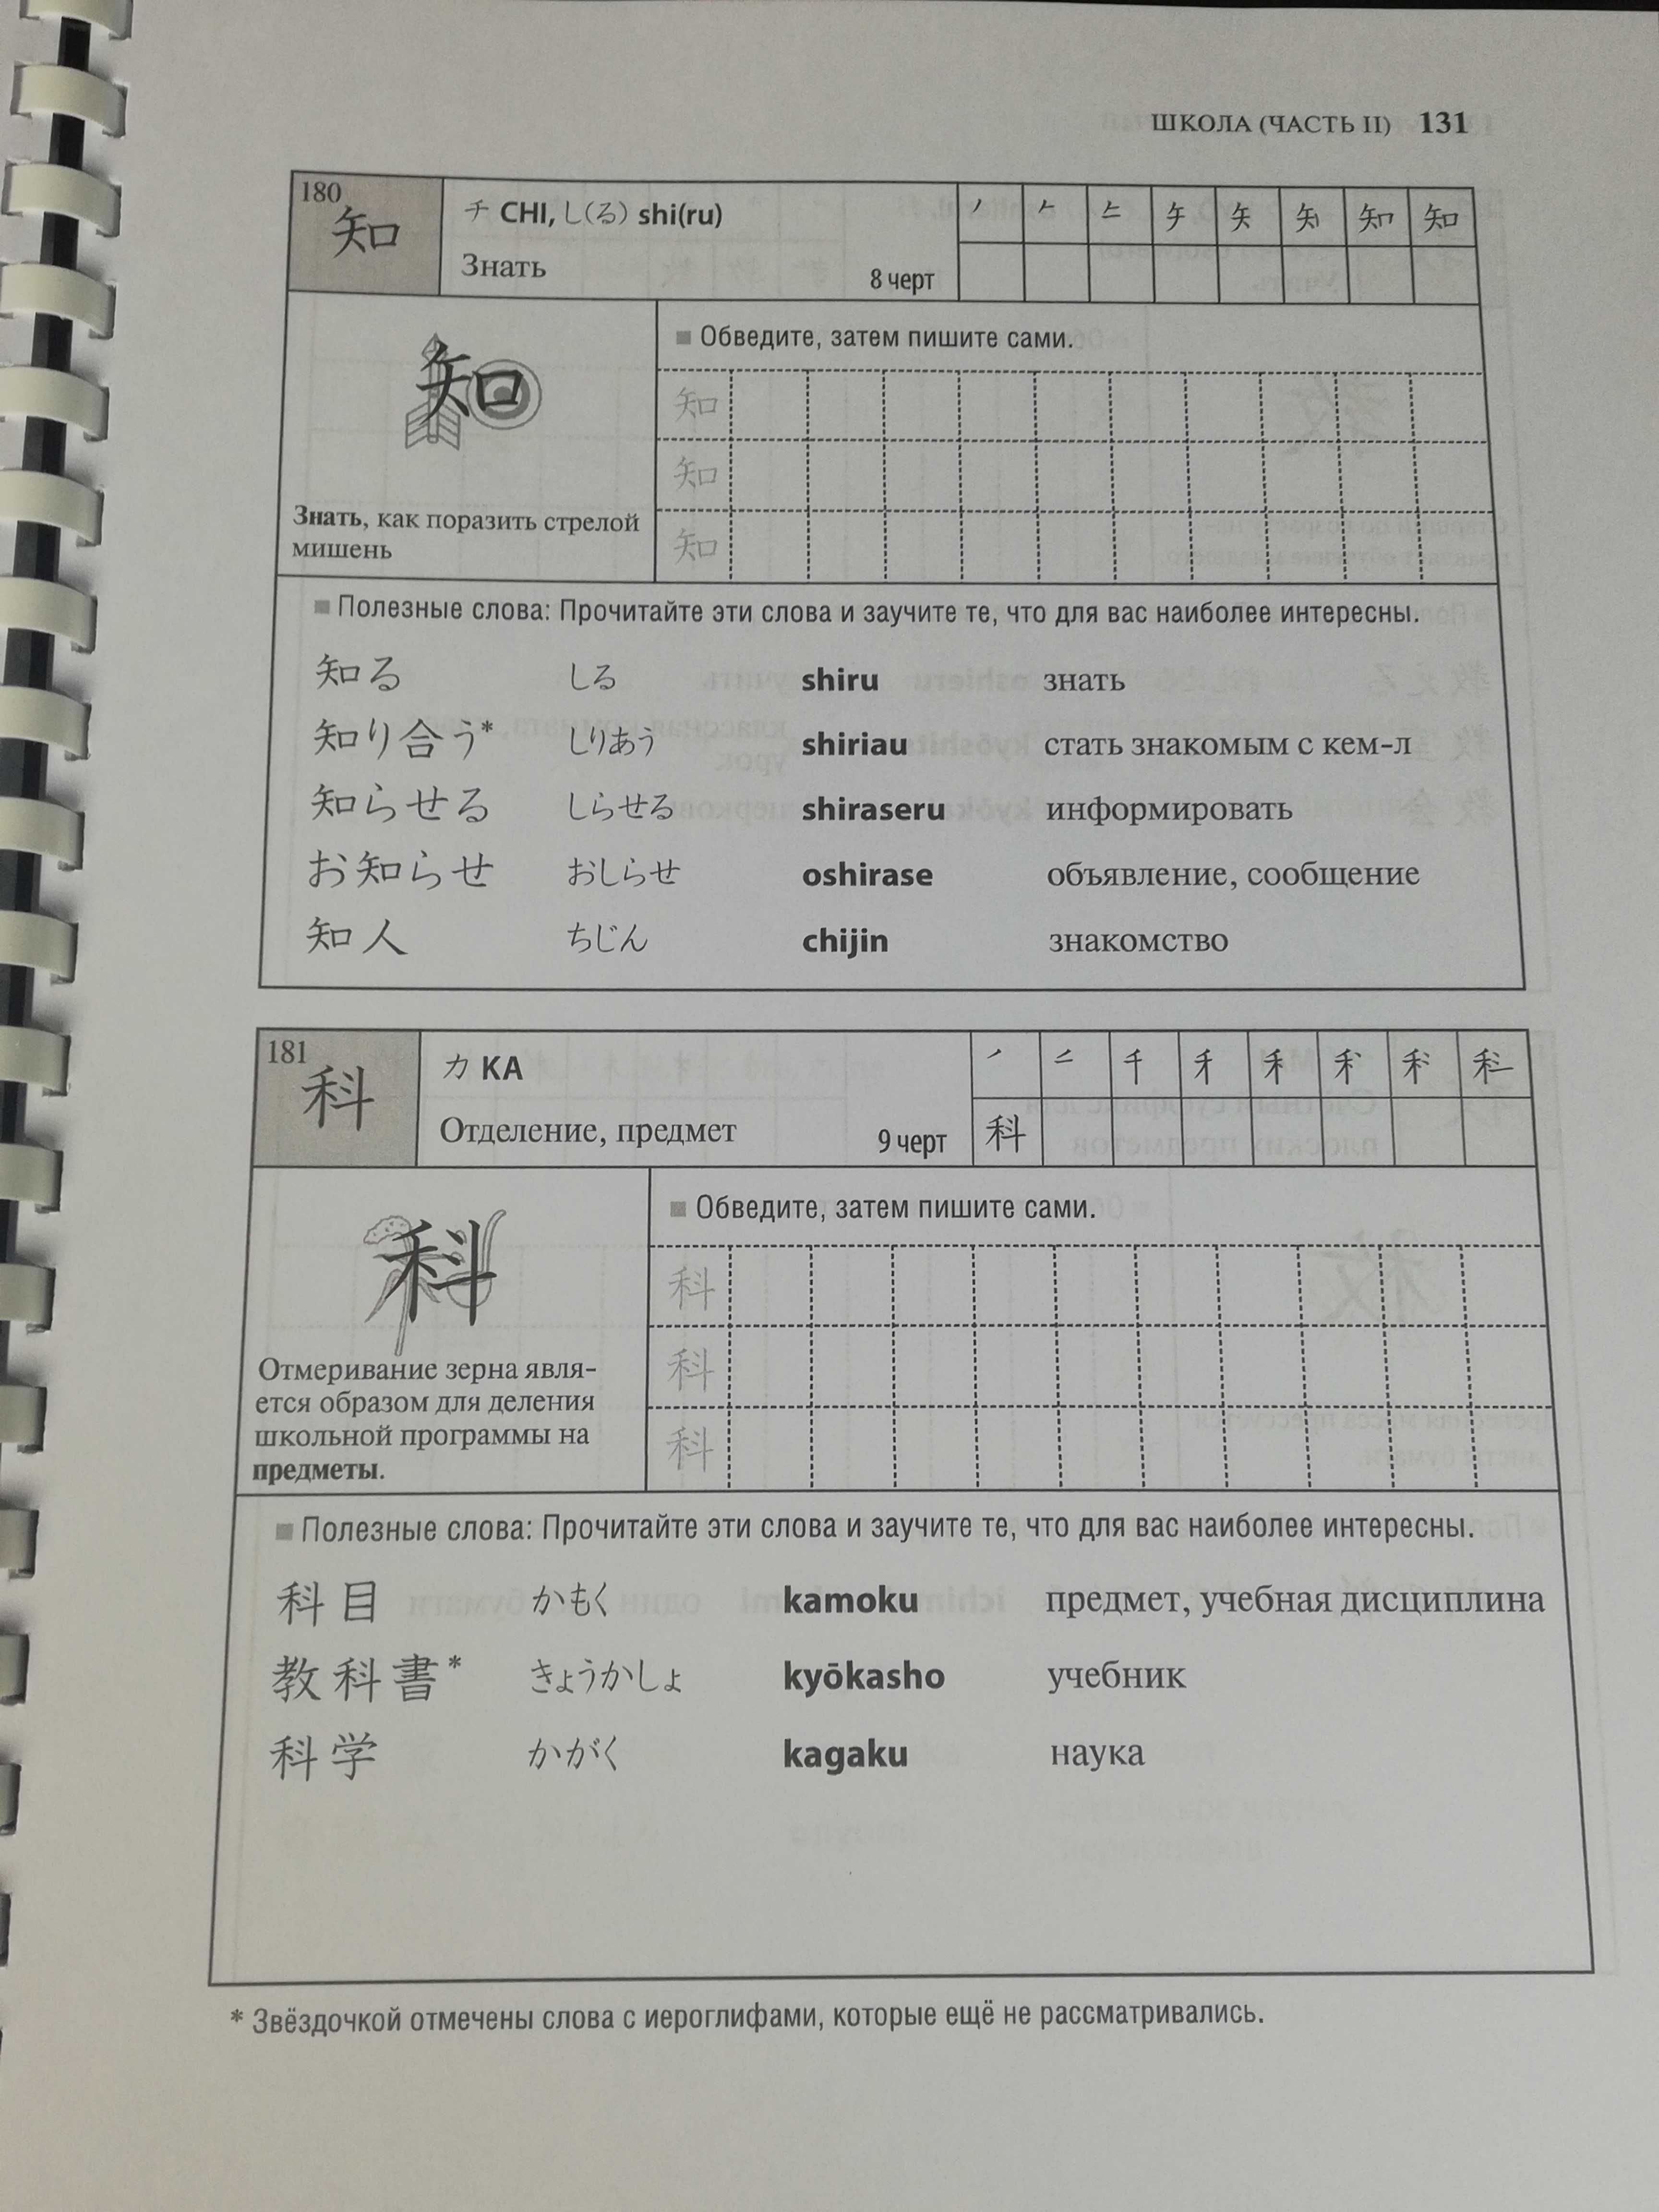 ШКОЛА (ЧАСТЬ II) 131
180
知
チ CHI, し(る) shi(ru)
Знать
8 черт
知
知
■ Обведите, затем пишите сами.
知
知
知
Знать, как поразить стрелой
мишень
■ Полезные слова: Прочитайте эти слова и заучите те, что для вас наиболее интересны.
知る しる shiru знать
知り合う* しりあう shiriau стать знакомым с кем-л
知らせる しらせる shiraseru информировать
お知らせ おしらせ oshirase объявление, сообщение
知人 ちじん chijin знакомство
181
科
カ KA
Отделение, предмет
9 черт
科
科
■ Обведите, затем пишите сами.
科
科
科
Отмеривание зерна явля-
ется образом для деления
школьной программы на
предметы.
■ Полезные слова: Прочитайте эти слова и заучите те, что для вас наиболее интересны.
科目 かもく kamoku предмет, учебная дисциплина
教科書* きょうかしょ kyōkasho учебник
科学 かがく kagaku наука
* Звёздочкой отмечены слова с иероглифами, которые ещё не рассматривались.